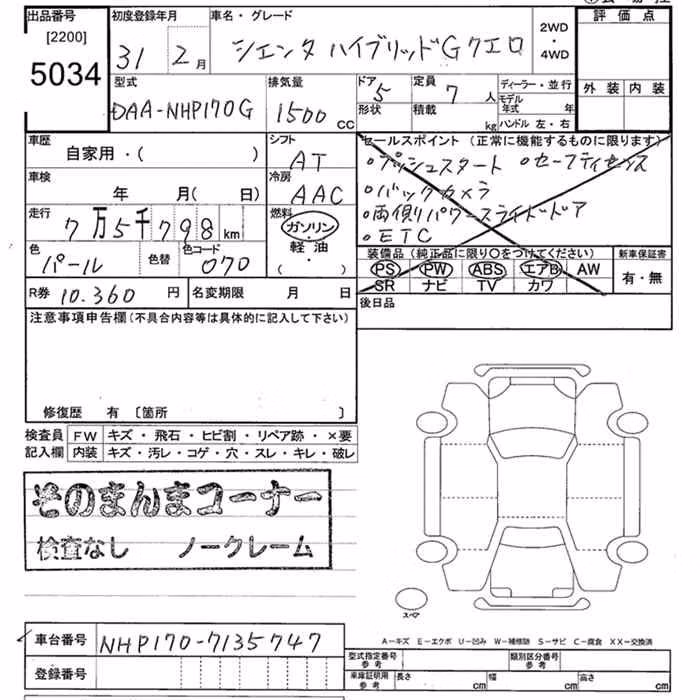 出品番号
[2200]
5034
初度登録年月
31 2月
車名・グレード
シエンタ ハイブリッドG クエロ
2WD
・
4WD
評価点
外装 内装
型式
DAA-NHP170G
排気量
1500 CC
ドア
5
形状
定員
7 人
積載
kg
ディーラー・並行
モデル
年式 年
ハンドル 左・右
車歴
自家用・( )
シフト
AT
車検
年 月( 日)
冷房
AAC
走行
7万5千798km
燃料
ガソリン
・
軽油
・
( )
色
パール
色替
色コード
070
セールスポイント (正常に機能するものに限ります)
・プッシュスタート ・セーフティセンス
・バックカメラ
・両側パワースライドドア
・ETC
装備品 (純正品に限り○をつけてください)
PS PW ABS エアB AW
SR ナビ TV カワ
新車保証書
有・無
R券 10.360 円
名変期限 月 日
後日品
注意事項申告欄(不具合内容等は具体的に記入して下さい)
修復歴 有 〔箇所 〕
検査員
記入欄
FW キズ・飛石・ヒビ割・リペア跡・×要
内装 キズ・汚レ・コゲ・穴・スレ・キレ・破レ
そのまんまコーナー
検査なし ノークレーム
スペア
A−キズ E−エクボ U−凹み W−補修跡 S−サビ C−腐食 XX−交換済
車台番号 NHP170-7135747
登録番号
型式指定番号
参考
類別区分番号
参考
車庫証明用
参考
長さ cm 幅 cm 高さ cm